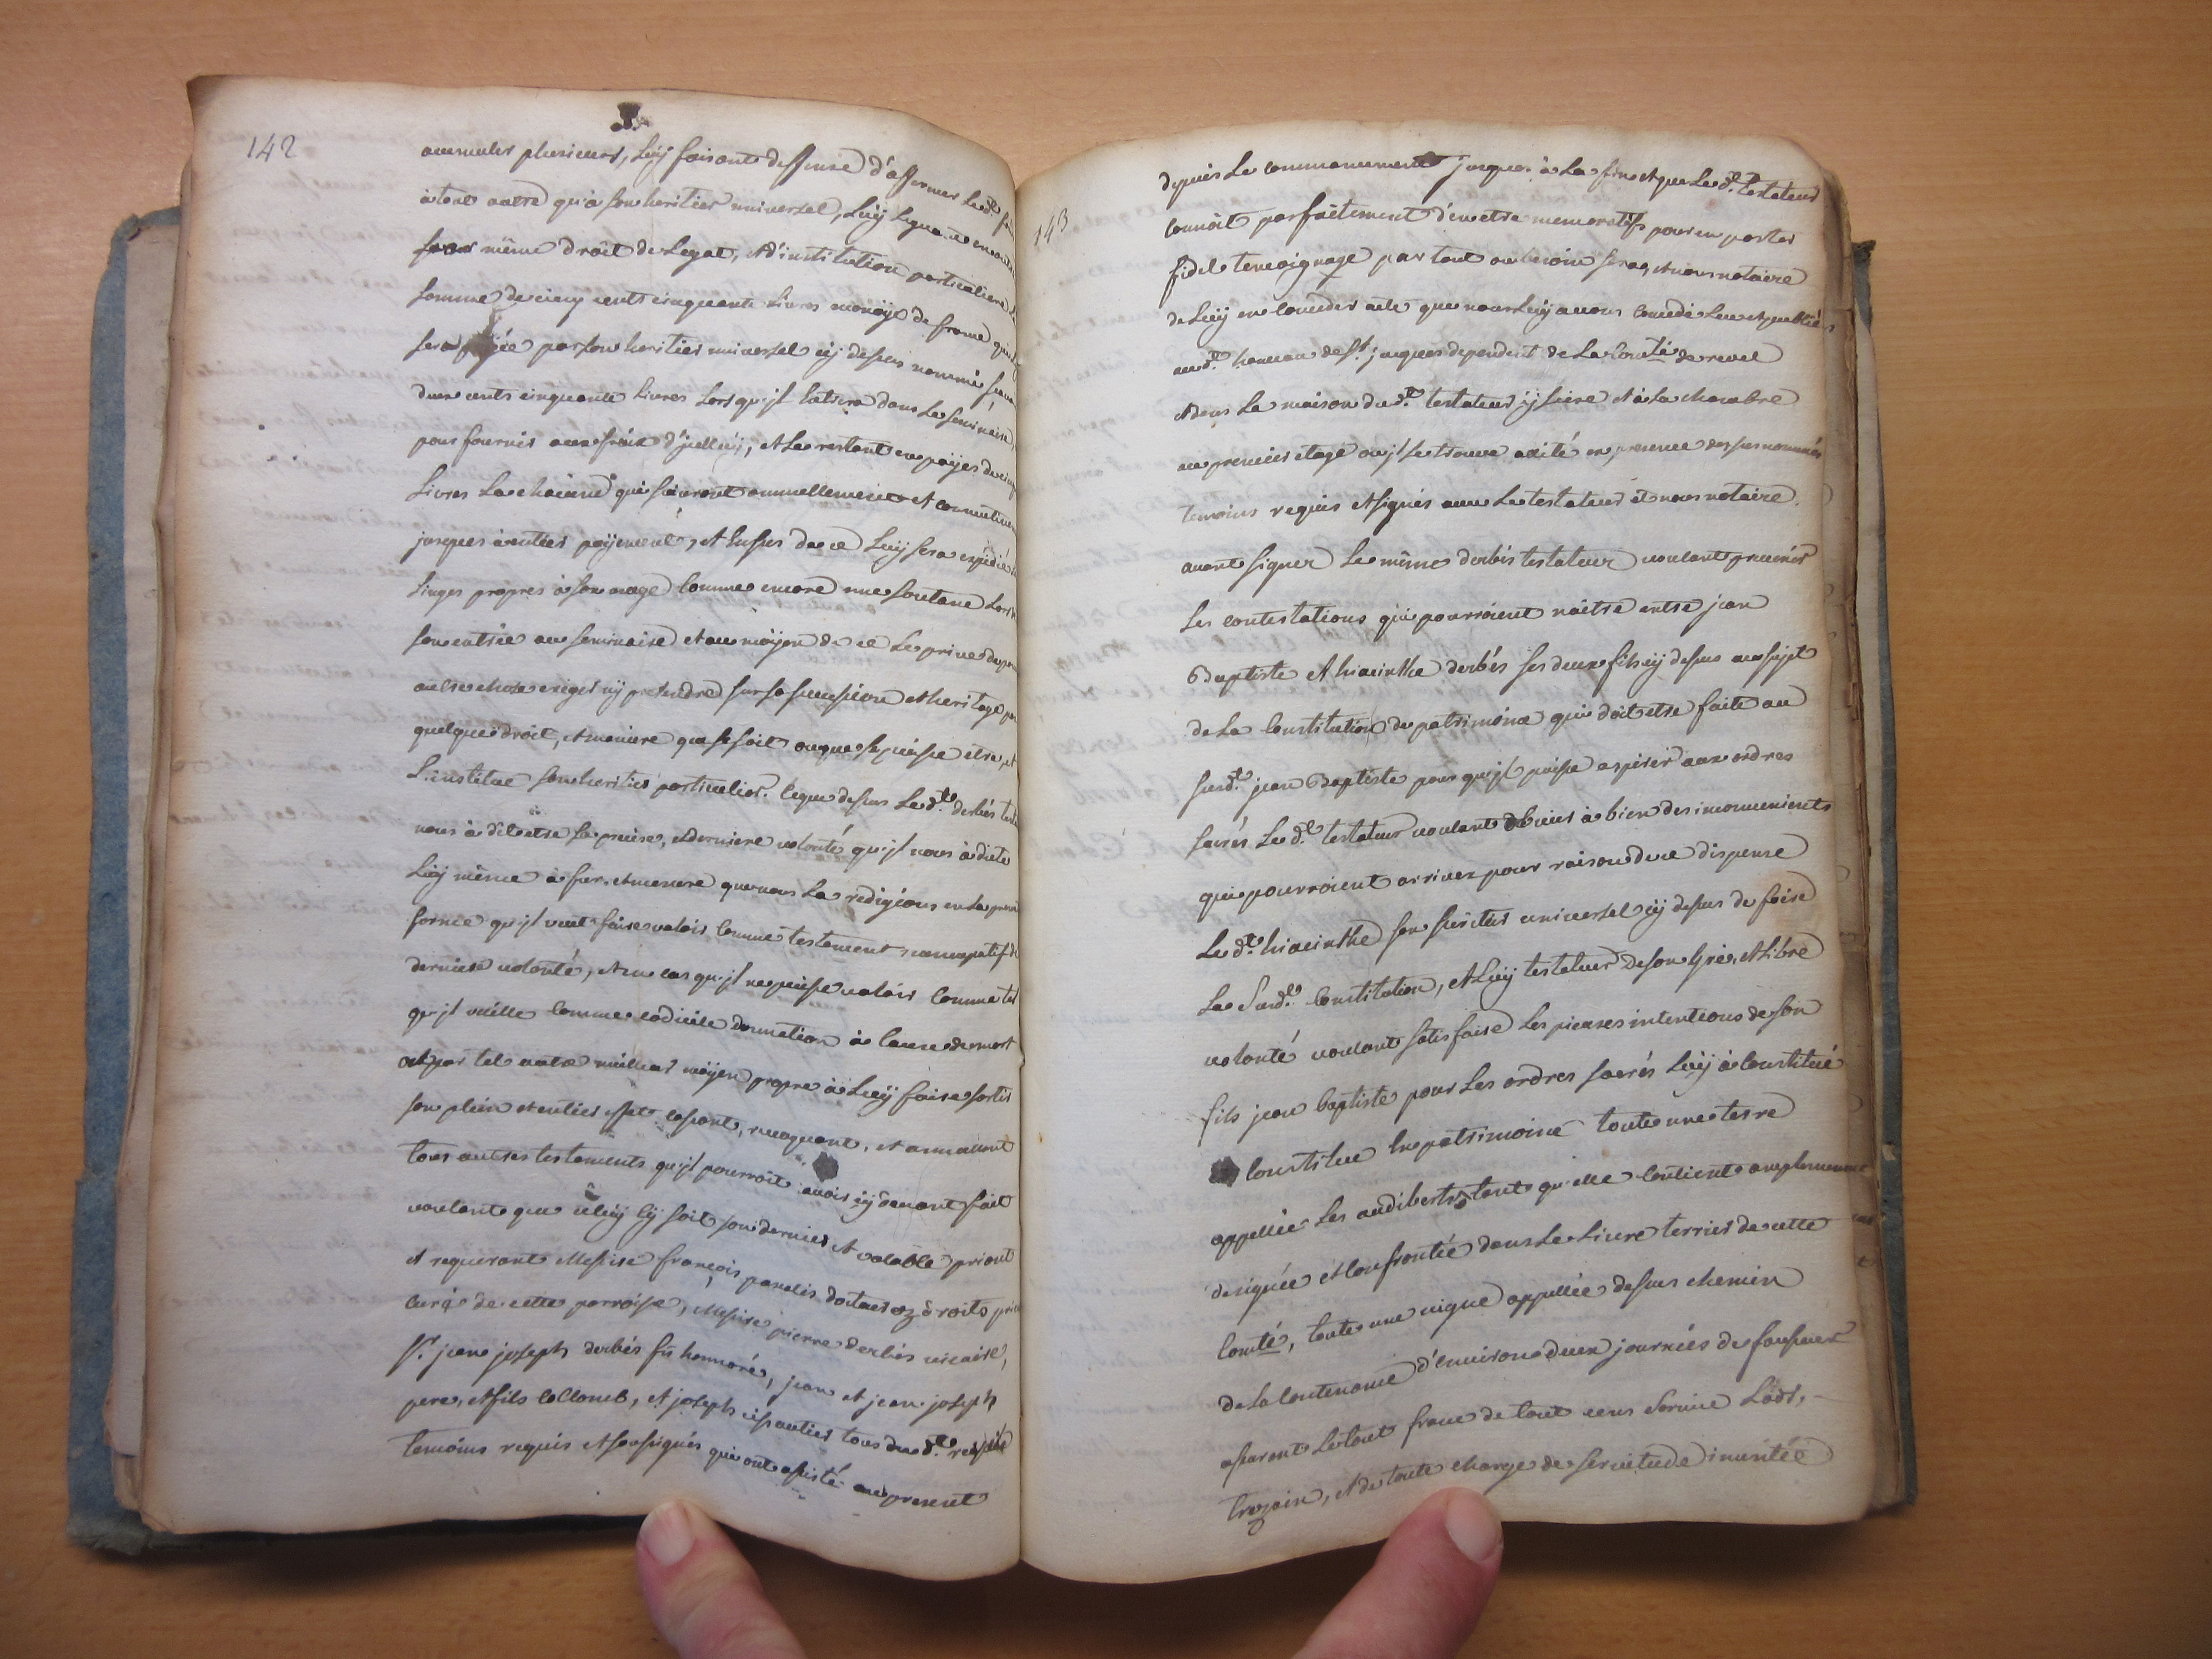 142
accumuler plusieurs, luy faisant deffense d'affermer led.t
à tout autre qu'à son heritier universel, luy leguant encore
pour même droit de legat, et d'institution particuliere
somme de cinq cents cinquante livres monoye de france qui
sera payée par son heritier universel cy dessus nommé
deux cents cinquante livres lors qu'jl entrera dans le seminaire,
pour fournir aux fraix d'jcelluy, et le restant en payes de
livres la chacune qui suivront annuellement et
jusques à entier payement, et ensus de ce luy sera expédié
linges propres à son usage comme encore une soutane lors
son entrée au seminaire et au moyen de ce le prive de
autre chose exiger ny pretendre sur sa sucession et heritage
quelque droit, et maniere que se soit ou que se puisse etre, et
l'institue son heritier particulier. Ce que dessus led.t derbés
nous à dit etre sa precise, et derniere volonté qu'jl nous à dicté
luy même à fur et mesure que nous la redigions en la
forme qu'jl veut faire valoir comme testament nuncupatif
derniere volonté, et en cas qu'jl ne puisse valoir comme tel
qu'jl vaille comme codicile donnation à cause de mort
et par tel autre meilleur moyen propre à luy faire sortir
son plein et entier effet cassant, revoquant, et annullant
tous autres testements qu'jl pourroit avoir cy devant fait
voulant que celuy cy soit son dernier et valable priant
et requerant Messire françois docteur ez droits
curé de cette parroisse, Messire pierre derbés vicaire,
S.r jean joseph derbés feu honnoré, jean et jean joseph
pere, et fils collomb, et joseph tous dud.t
temoins requis et soussignés qui ont assisté au present
143
depuis le commancement jusques à la fin et que led.t testateur
connoît parfaitement d'en etre memoratifs pour en porter
fidel temoignage par tout ou besoin sera, et nous notaire
de luy en conceder acte que nous luy avons concedé leu et publié
aud.t hameau de S.t jacques dependent de la Comté de revel
et dans la maison dud.t testateur y scise et à la chambre
au premier etage ou jl se trouve alité en presence des susnommés
temoins requis et signés avec le testateur et nous notaire.
avant signer le même derbés testateur voulant prevenir
les contestations qui pourroient naitre entre jean
Baptiste et hiacinthe derbés ses deux fils cy dessus au sujet
de la Constitution de patrimoine qui doit etre faite au
susd.t jean Baptiste pour qu'jl puisse aspirer aux ordres
sacrés led.t testateur voulant obvier à bien des inconvenients
qui pourroient arriver pour raison de ce dispense
led.t hiacinthe son heritier universel cy dessus de faire
la susd.te Constitution, et luy testateur de son gré, et libre
volonté voulant satisfaire les pieuses intentions de son
fils jean baptiste pour les ordres sacrés luy à constitué
constitue en patrimoine toute une terre
appellée les audiberts tout qu'elle contient amplement
designée et confrontée dans le livre terrier de cette
Comté, toute une vigne appellée dessus chemin
de la contenance d'environ deux journées de fossoyer
assurant le tout franc de tout cens service Lods,
trezain, et de toute charge de servitude inusitée